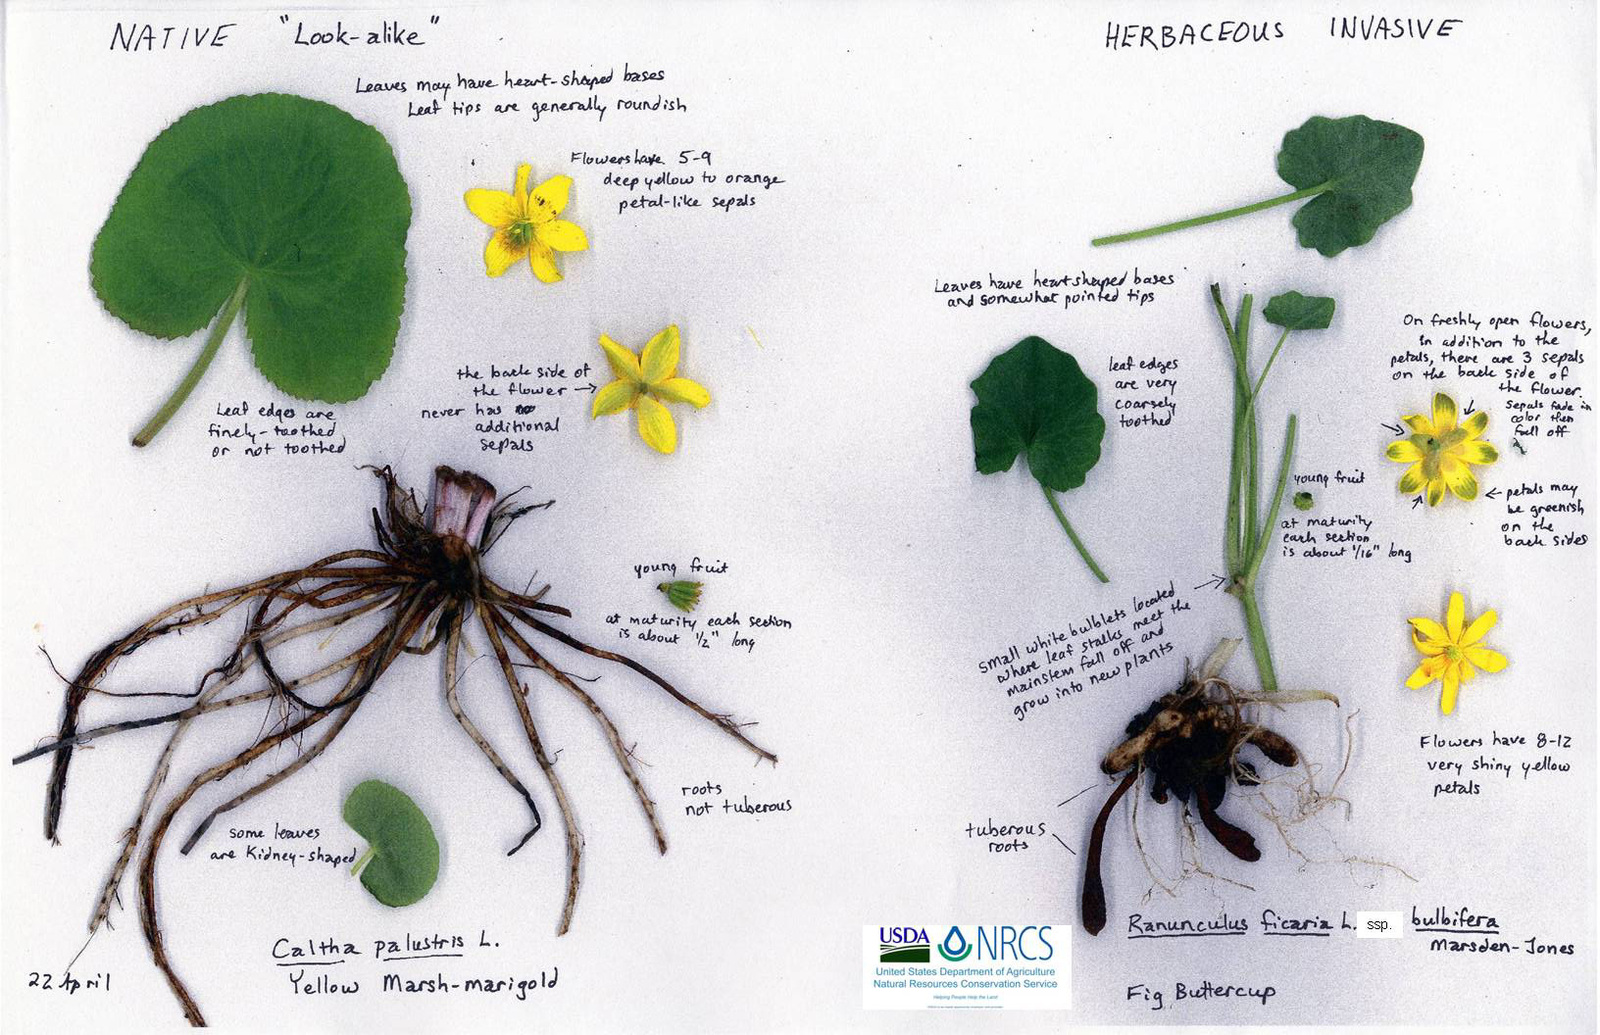 NATIVE "Look-alike"
Leaves may have heart-shaped bases
Leaf tips are generally roundish
Flowers have 5-9
deep yellow to orange
petal-like sepals
the back side of
the flower →
never has
additional
sepals
Leaf edges are
finely-toothed
or not toothed
young fruit
at maturity each section
is about 1/2" long
roots
not tuberous
some leaves
are Kidney-shaped
Caltha palustris L.
Yellow Marsh-marigold
22 April
HERBACEOUS INVASIVE
Leaves have heart shaped bases
and somewhat pointed tips
leaf edges
are very
coarsely
toothed
On freshly open flowers,
in addition to the
petals, there are 3 sepals
on the back side of
the flower.
Sepals fade in
color then
fall off
← petals may
be greenish
on the
back sides
young fruit
at maturity
each section
is about 1/16" long
Small white bulblets located
where leaf stalks meet the
mainstem fall off and
grow into new plants
Flowers have 8-12
very shiny yellow
petals
tuberous
roots
Ranunculus ficaria L. ssp. bulbifera
Marsden-Jones
Fig Buttercup
USDA NRCS
United States Department of Agriculture
Natural Resources Conservation Service
Helping People Help the Land